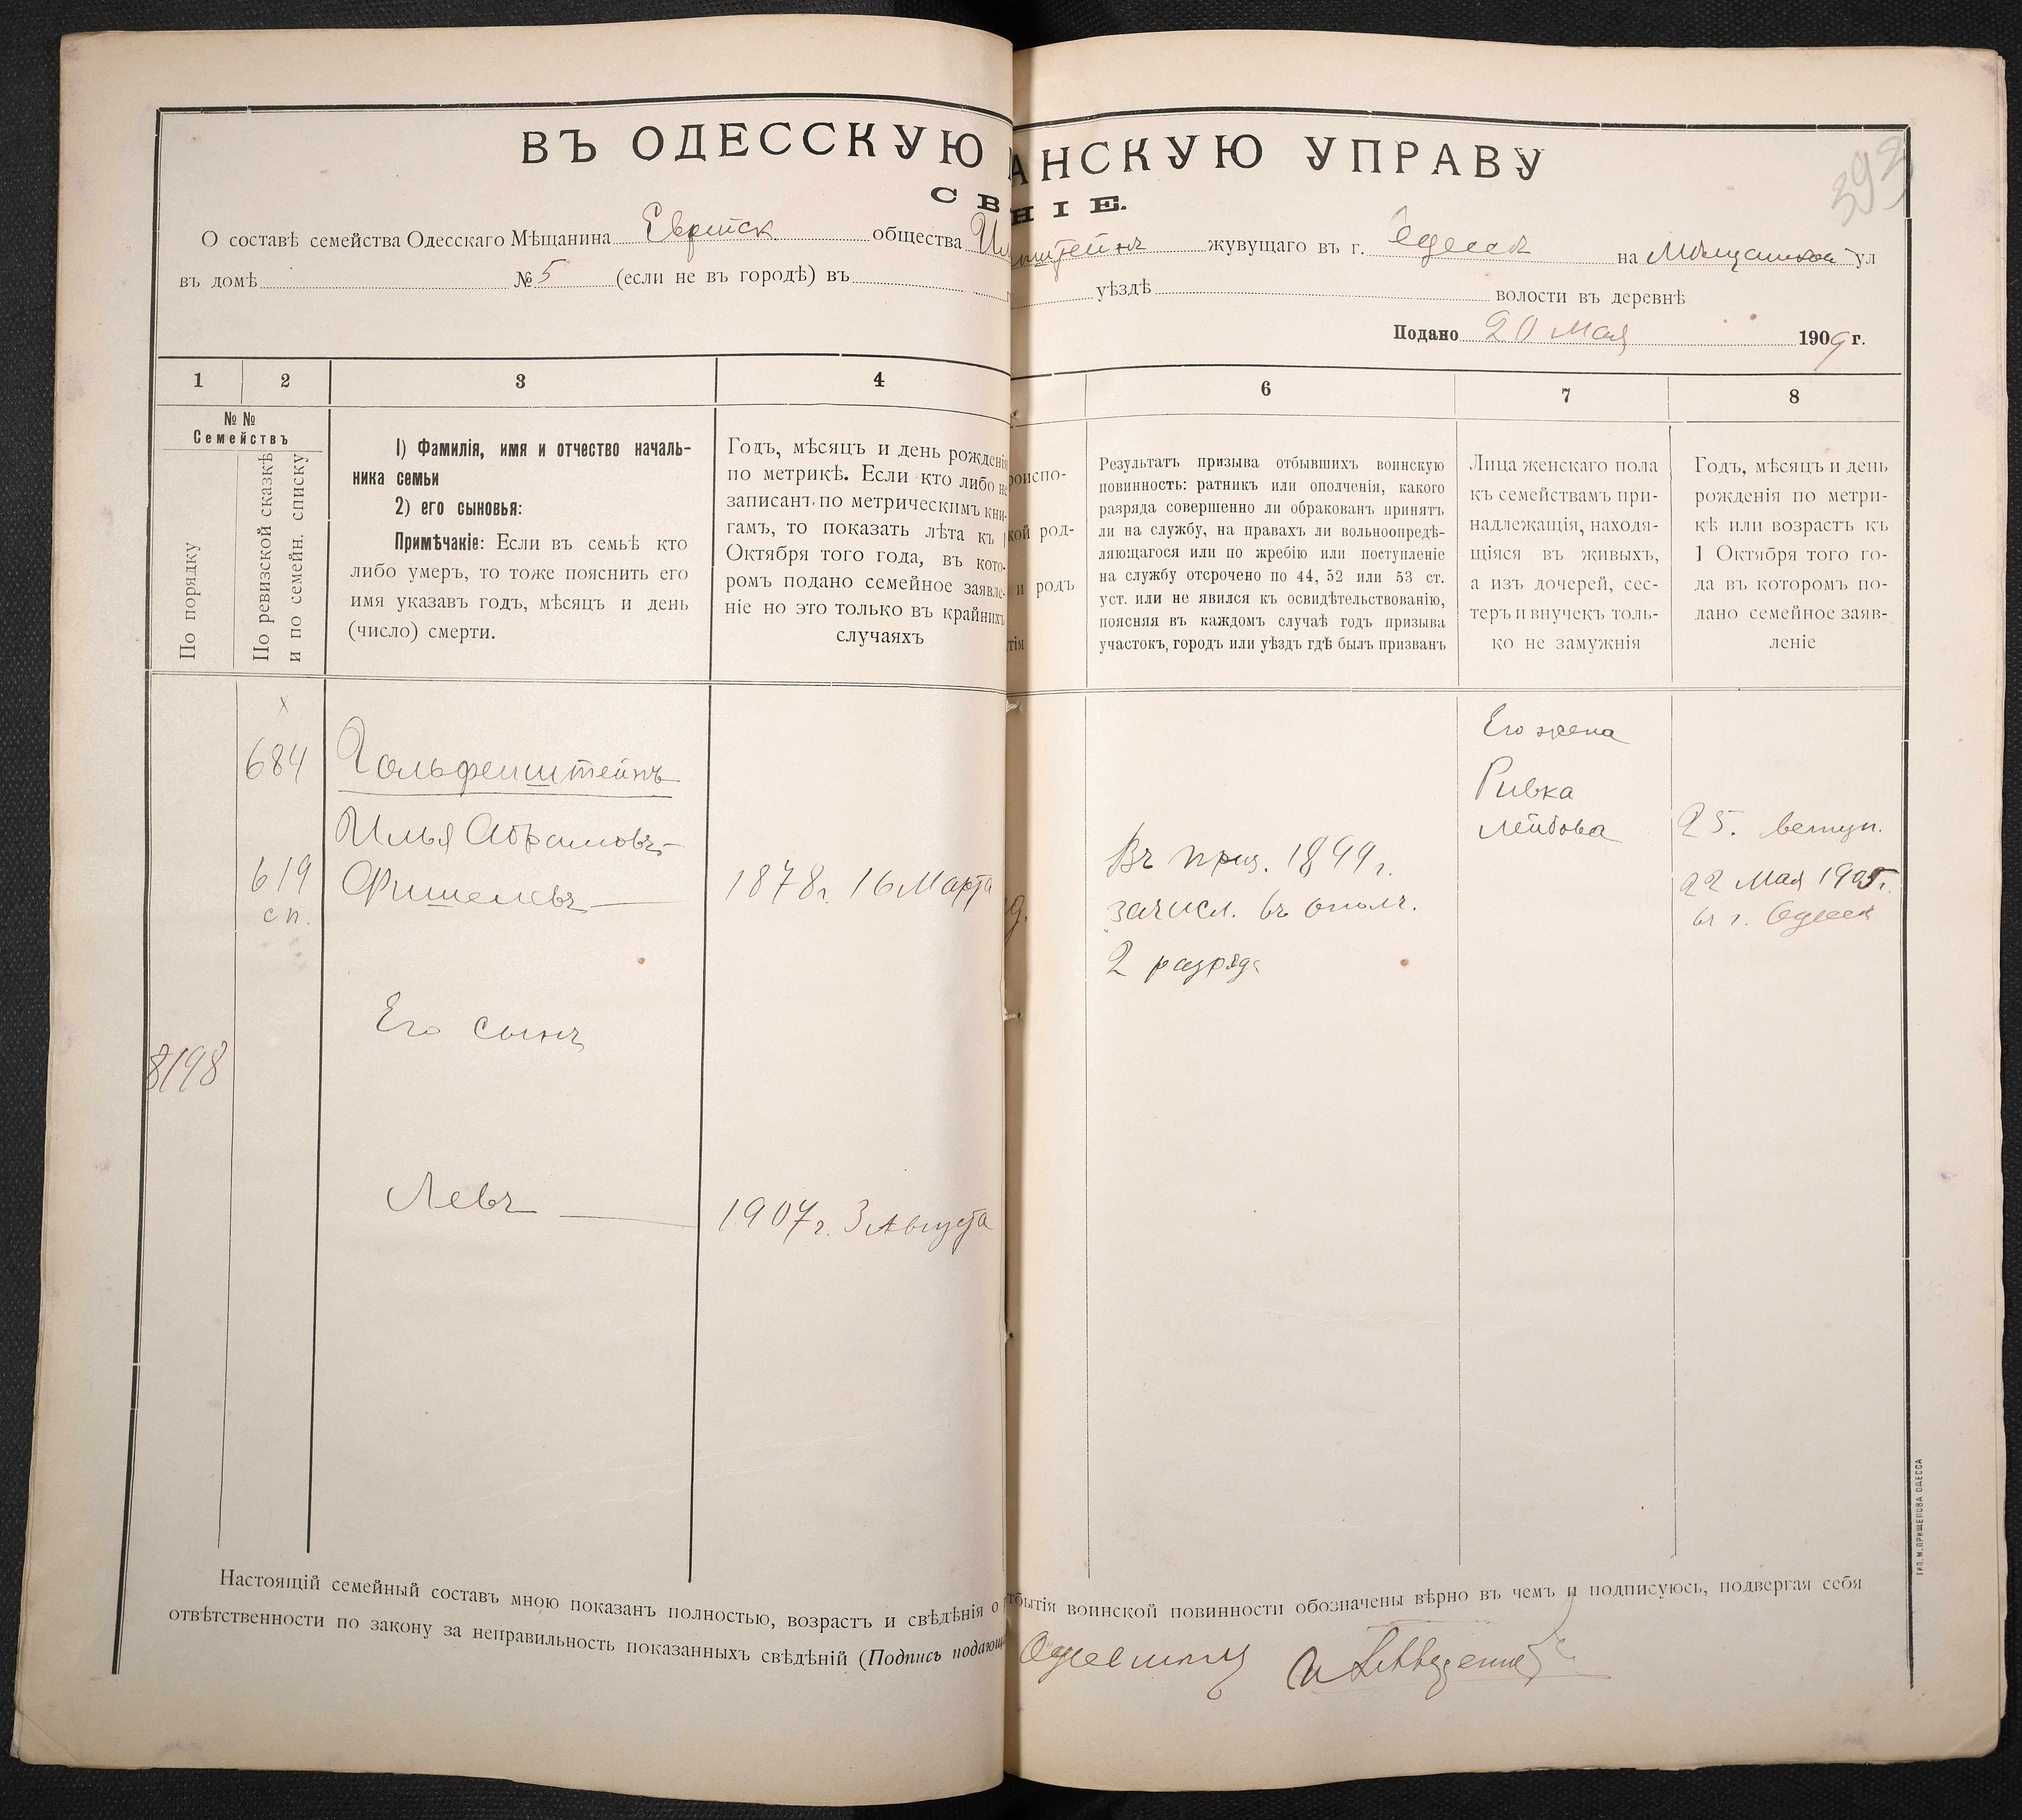 ВЪ ОДЕССКУЮ АНСКУЮ УПРАВУ
СВ НІЕ.
393
О составѣ семейства Одесскаго Мѣщанина Еврейск общества Ил штейнъ жувущаго въ г. Одессѣ на Мѣщанской ул
въ домѣ № 5 (если не въ городѣ) въ уѣздѣ волости въ деревнѣ
Подано 20 Мая 1909 г.
1 2 3 4 6 7 8
№ №
Семействъ
По порядку
По ревизской сказкѣ
и по семейн. списку
1) Фамилія, имя и отчество началь-
ника семьи
2) его сыновья:
Примѣчакіе: Если въ семьѣ кто
либо умеръ, то тоже пояснить его
имя указавъ годъ, мѣсяцъ и день
(число) смерти.
Годъ, мѣсяцъ и день рожденія
по метрикѣ. Если кто либо не
записанъ по метрическимъ кни-
гамъ, то показать лѣта къ 1
Октября того года, въ кото-
ромъ подано семейное заявле-
ніе но это только въ крайнихъ
случаяхъ
роиспо-
кой род-
и родъ
тія
Результатъ призыва отбывшихъ воинскую
повинность: ратникъ или ополченія, какого
разряда совершенно ли обракованъ принятъ
ли на службу, на правахъ ли вольноопредѣ-
ляющагося или по жребію или поступленіе
на службу отсрочено по 44, 52 или 53 ст.
уст. или не явился къ освидѣтельствованію,
поясняя въ каждомъ случаѣ годъ призыва
участокъ, городъ или уѣздъ гдѣ былъ призванъ
Лица женскаго пола
къ семействамъ при-
надлежащія, находя-
щіяся въ живыхъ,
а изъ дочерей, сес-
теръ и внучекъ толь-
ко не замужнія
Годъ, мѣсяцъ и день
рожденія по метри-
кѣ или возрастъ къ
1 Октября того го-
да въ которомъ по-
дано семейное заяв-
леніе
х
684
619
сп.
8198
Гольфенштейнъ
Илья Абрамовъ-
Фишелевъ
1878 г. 16 Марта
Его сынъ
Левъ
1907 г. 3 Августа
Въ приз. 1899 г.
зачисл. въ ополч.
2 разряда
Его жена
Ривка
Лейбова
25. вступ.
22 Мая 1905 г.
въ г. Одессѣ
Настоящій семейный составъ мною показанъ полностью, возрастъ и свѣдѣнія о тбытія воинской повинности обозначены вѣрно въ чемъ и подписуюсь, подвергая себя
отвѣтственности по закону за неправильность показанныхъ свѣдѣній (Подпись подающ
ТИП. М. ПРИЩЕПОВА ОДЕССА